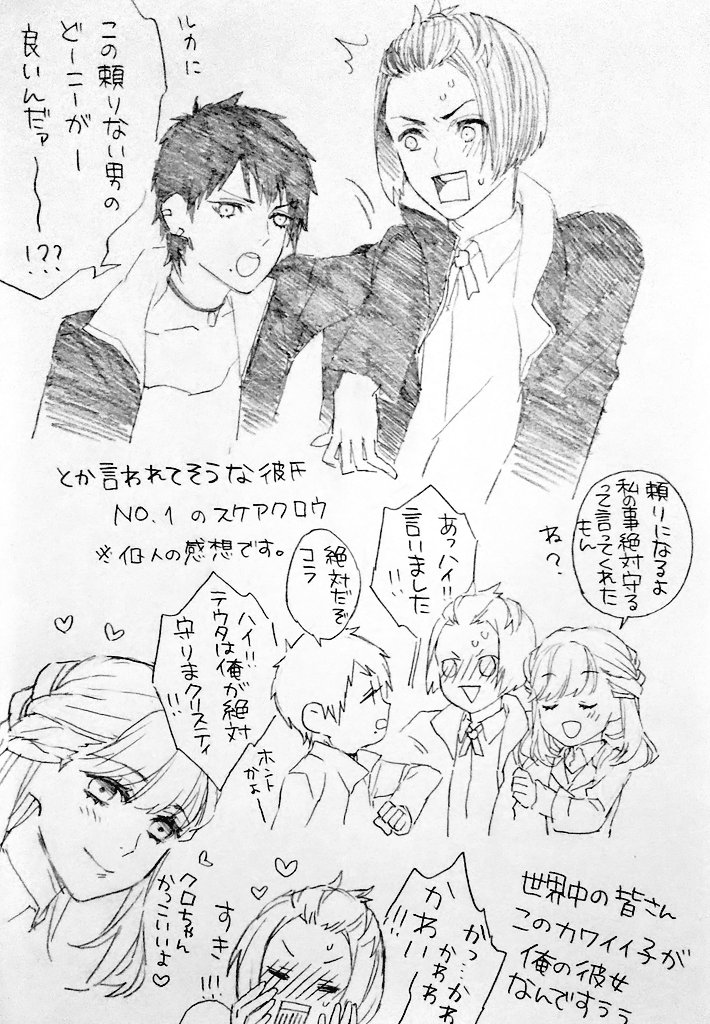 ルカに
この頼りない男の
どーこーがー
良いんだァ
〜〜〜!??
とか言われてそうな彼氏
NO.1 のスケアクロウ
※個人の感想です。
頼りになるよ
私の事絶対守る
って言ってくれた
もん
ね?
あっハイ!!
言いました
!!
絶対だぞ
コラ
ハイ!!
テウタは俺が絶対
守りまクリスティ
!!
ホント
かよー
クロちゃん
かっこいいよ♡
すき
!!!
かっ…かわ
かわわわ
かわいー
!!
世界中の皆さん
このカワイイ子が
俺の彼女
なんですぅぅ